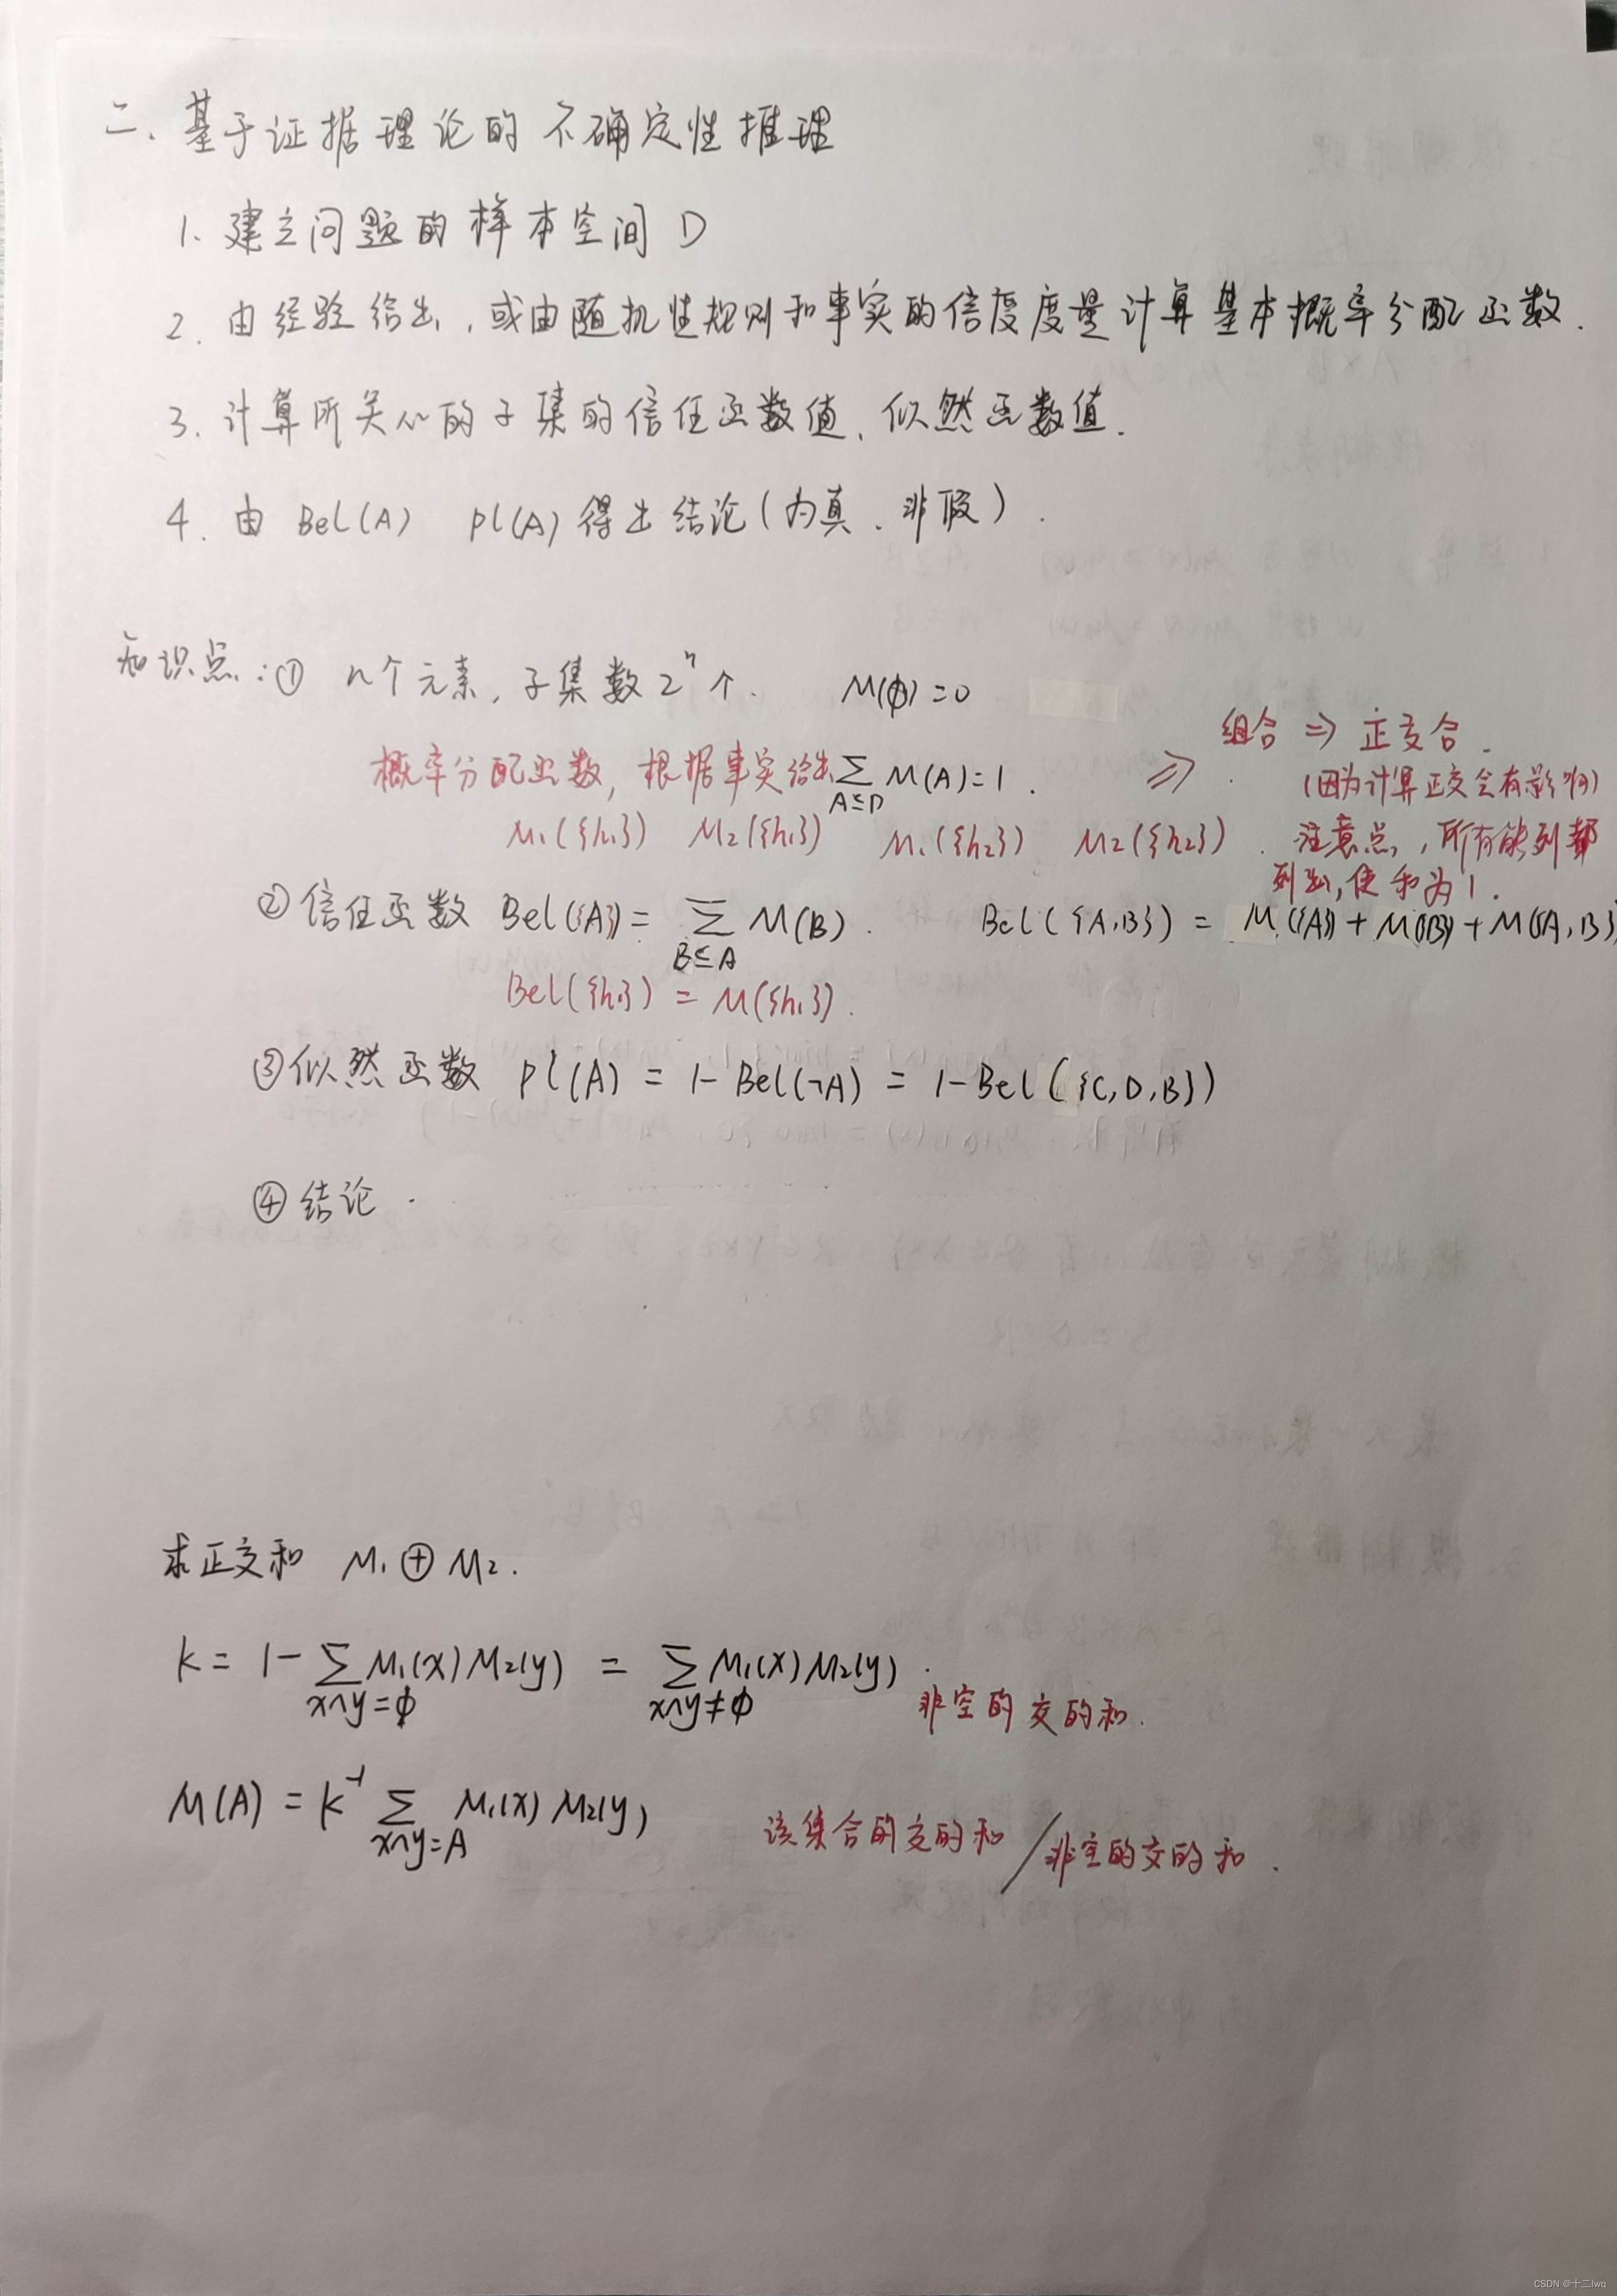 二、基于证据理论的不确定性推理
1. 建立问题的样本空间 D
2. 由经验给出,或由随机性规则和事实的信度度量计算基本概率分配函数.
3. 计算所关心的子集的信任函数值、似然函数值.
4. 由 Bel(A) pl(A) 得出结论(为真、非假).
知识点:① n个元素,子集数2^n个. M(φ)=0
组合 ⇒ 正交合.
概率分配函数,根据事实给出 ∑_{A⊆D} M(A)=1. ⇒ (因为计算正交会有影响)
M₁({h₁}) M₂({h₁}) M₁({h₂}) M₂({h₂}). 注意点,所有能列都
列出,使和为1.
② 信任函数 Bel({A})= ∑_{B⊆A} M(B). Bel({A,B}) = M({A})+M({B})+M({A,B})
Bel({h₁}) = M({h₁}).
③ 似然函数 pl(A) = 1-Bel(¬A) = 1-Bel({C,D,B})
④ 结论.
求正交和 M₁⊕M₂.
k = 1-∑_{x∩y=φ} M₁(x)M₂(y) = ∑_{x∩y≠φ} M₁(x)M₂(y). 非空的交的和.
M(A) = k⁻¹ ∑_{x∩y=A} M₁(x)M₂(y) 该集合的交的和/非空的交的和.
CSDN @十二lwq